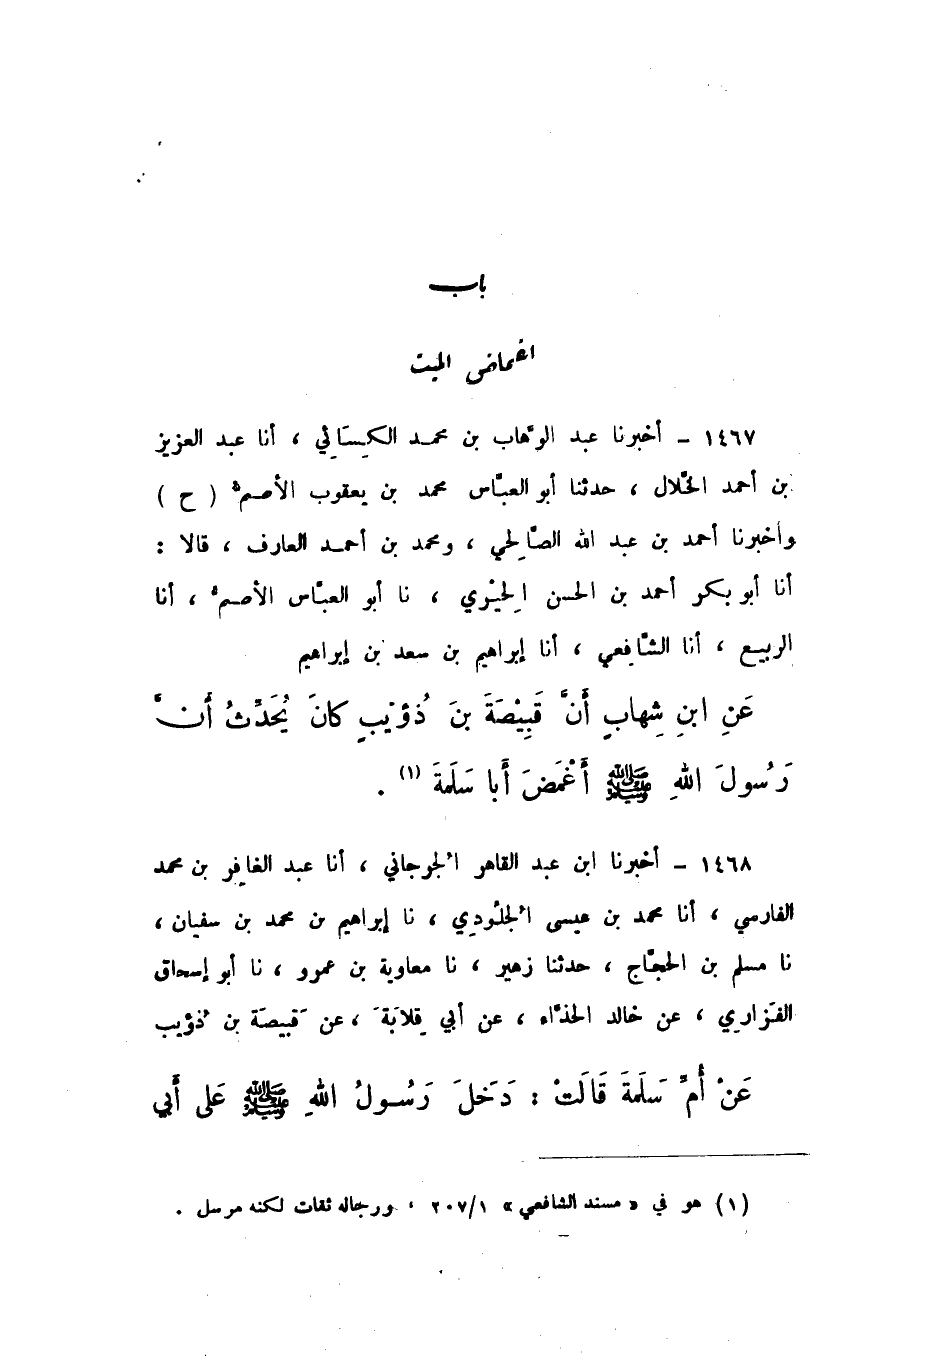 باب
اغماض الميت
١٤٦٧ - أخبرنا عبد الوهاب بن محمد الكِسَائي ، أنا عبد العزيز
بن أحمد الخلَّال ، حدثنا أبو العبَّاس محمد بن يعقوب الأصمُّ ( ح )
وأخبرنا أحمد بن عبد الله الصَّالحي ، ومحمد بن أحمد العارف ، قالا :
أنا أبو بكر أحمد بن الحسن الحِيْري ، نا أبو العبَّاس الأصمُّ ، أنا
الربيع ، أنا الشَّافِعي ، أنا إبراهيم بن سعد بن إبراهيم
عَنِ ابنِ شِهابٍ أَنَّ قَبِيْصَةَ بنَ ذُؤَيْبٍ كانَ يُحَدِّثُ أَنَّ
رَسُولَ اللهِ ﷺ أَغْمَضَ أَبا سَلَمَةَ (١) .
١٤٦٨ - أخبرنا ابن عبد القاهر الُجرجاني ، أنا عبد الغافِر بن محمد
الفارسي ، أنا محمد بن عيسى الُجلُودِي ، نا إبراهيم بن محمد بن سفيان ،
نا مسلم بن الحجَّاج ، حدثنا زهير ، نا معاوية بن عمرو ، نا أبو إسحاق
الفَزاري ، عن خالد الحذَّاء ، عن أبي قِلابَةَ ، عن قَبيصَة بن ذُؤيب
عَنْ أُمِّ سَلَمَةَ قَالَتْ : دَخَلَ رَسُولُ اللهِ ﷺ عَلى أَبي
(١) هو في « مسند الشافعي » ٢٠٧/١ ، ورجاله ثقات لكنه مرسل .